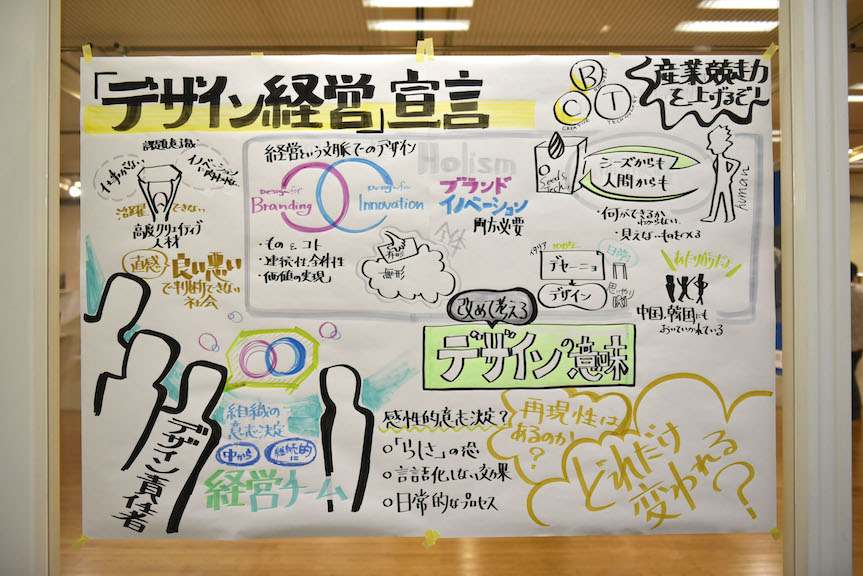 「デザイン経営」宣言
B
C
T
CREATIVE
産業競走力
を上げるぞ!
経営という文脈でのデザイン
Holism
Design for
Branding
Design for
Innovation
ブランド
イノベーション
両方必要
・ものとコト
・連続性、全体性
・「価値の実現」
全体
有形
無形
Seeds
シーズからも
人間からも
human
・何ができるか
わからない
イタリア
デセーニョ
デザイン
日常
仕事がない
イノベーション
活躍できない
高度クリエイティブ
人材
直感
良い悪い
で判断できない
社会
中国、韓国にも
おいていかれている
改めて考える
デザインの意味
組織の
意志決定
中から
継続的に
経営チーム
デザイン責任者
感性的意志決定?
○「らしさ」の恐
○言語化しない効果
○日常的なプロセス
再現性は
あるのか
?
どれだけ
変われる
?